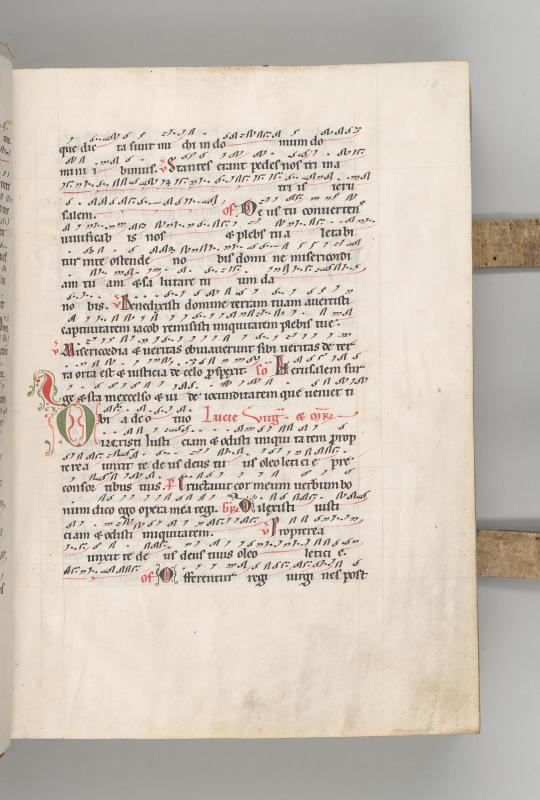 que dic ta sunt mi chi in do mum do
mini i bimus. v Stantes erant pedes nos tri in a
tri is ieru
salem. of. De us tu conuertens
uiuificab is nos & plebs tu a letabi
tur in te ostende no bis domi ne misericordi
am tu am & sa lutare tu um da
no bis. v Benedixisti domine terram tuam auertisti
captiuitatem iacob remisisti iniquitatem plebis tue.
v Misericordia & ueritas obuiauerunt sibi ueritas de ter
ra orta est & iusticia de celo pspexit. co Ierusalem sur
ge & sta in excelso & ui de iocunditatem que ueniet ti
bi a deo tuo Lucie uirg &
Dilexisti Iusti ciam & odisti iniqui ta tem prop
terea unxit te de us deus tu us oleo leticie pre
consor tibus tuis. p Eructauit cor meum uerbum bo
num dico ego opera mea regi. Dilexisti iusti
ciam & odisti iniquitatem. v Propterea
unxit te de us deus tuus oleo leticie.
of. Offerentur regi uirgi nes post